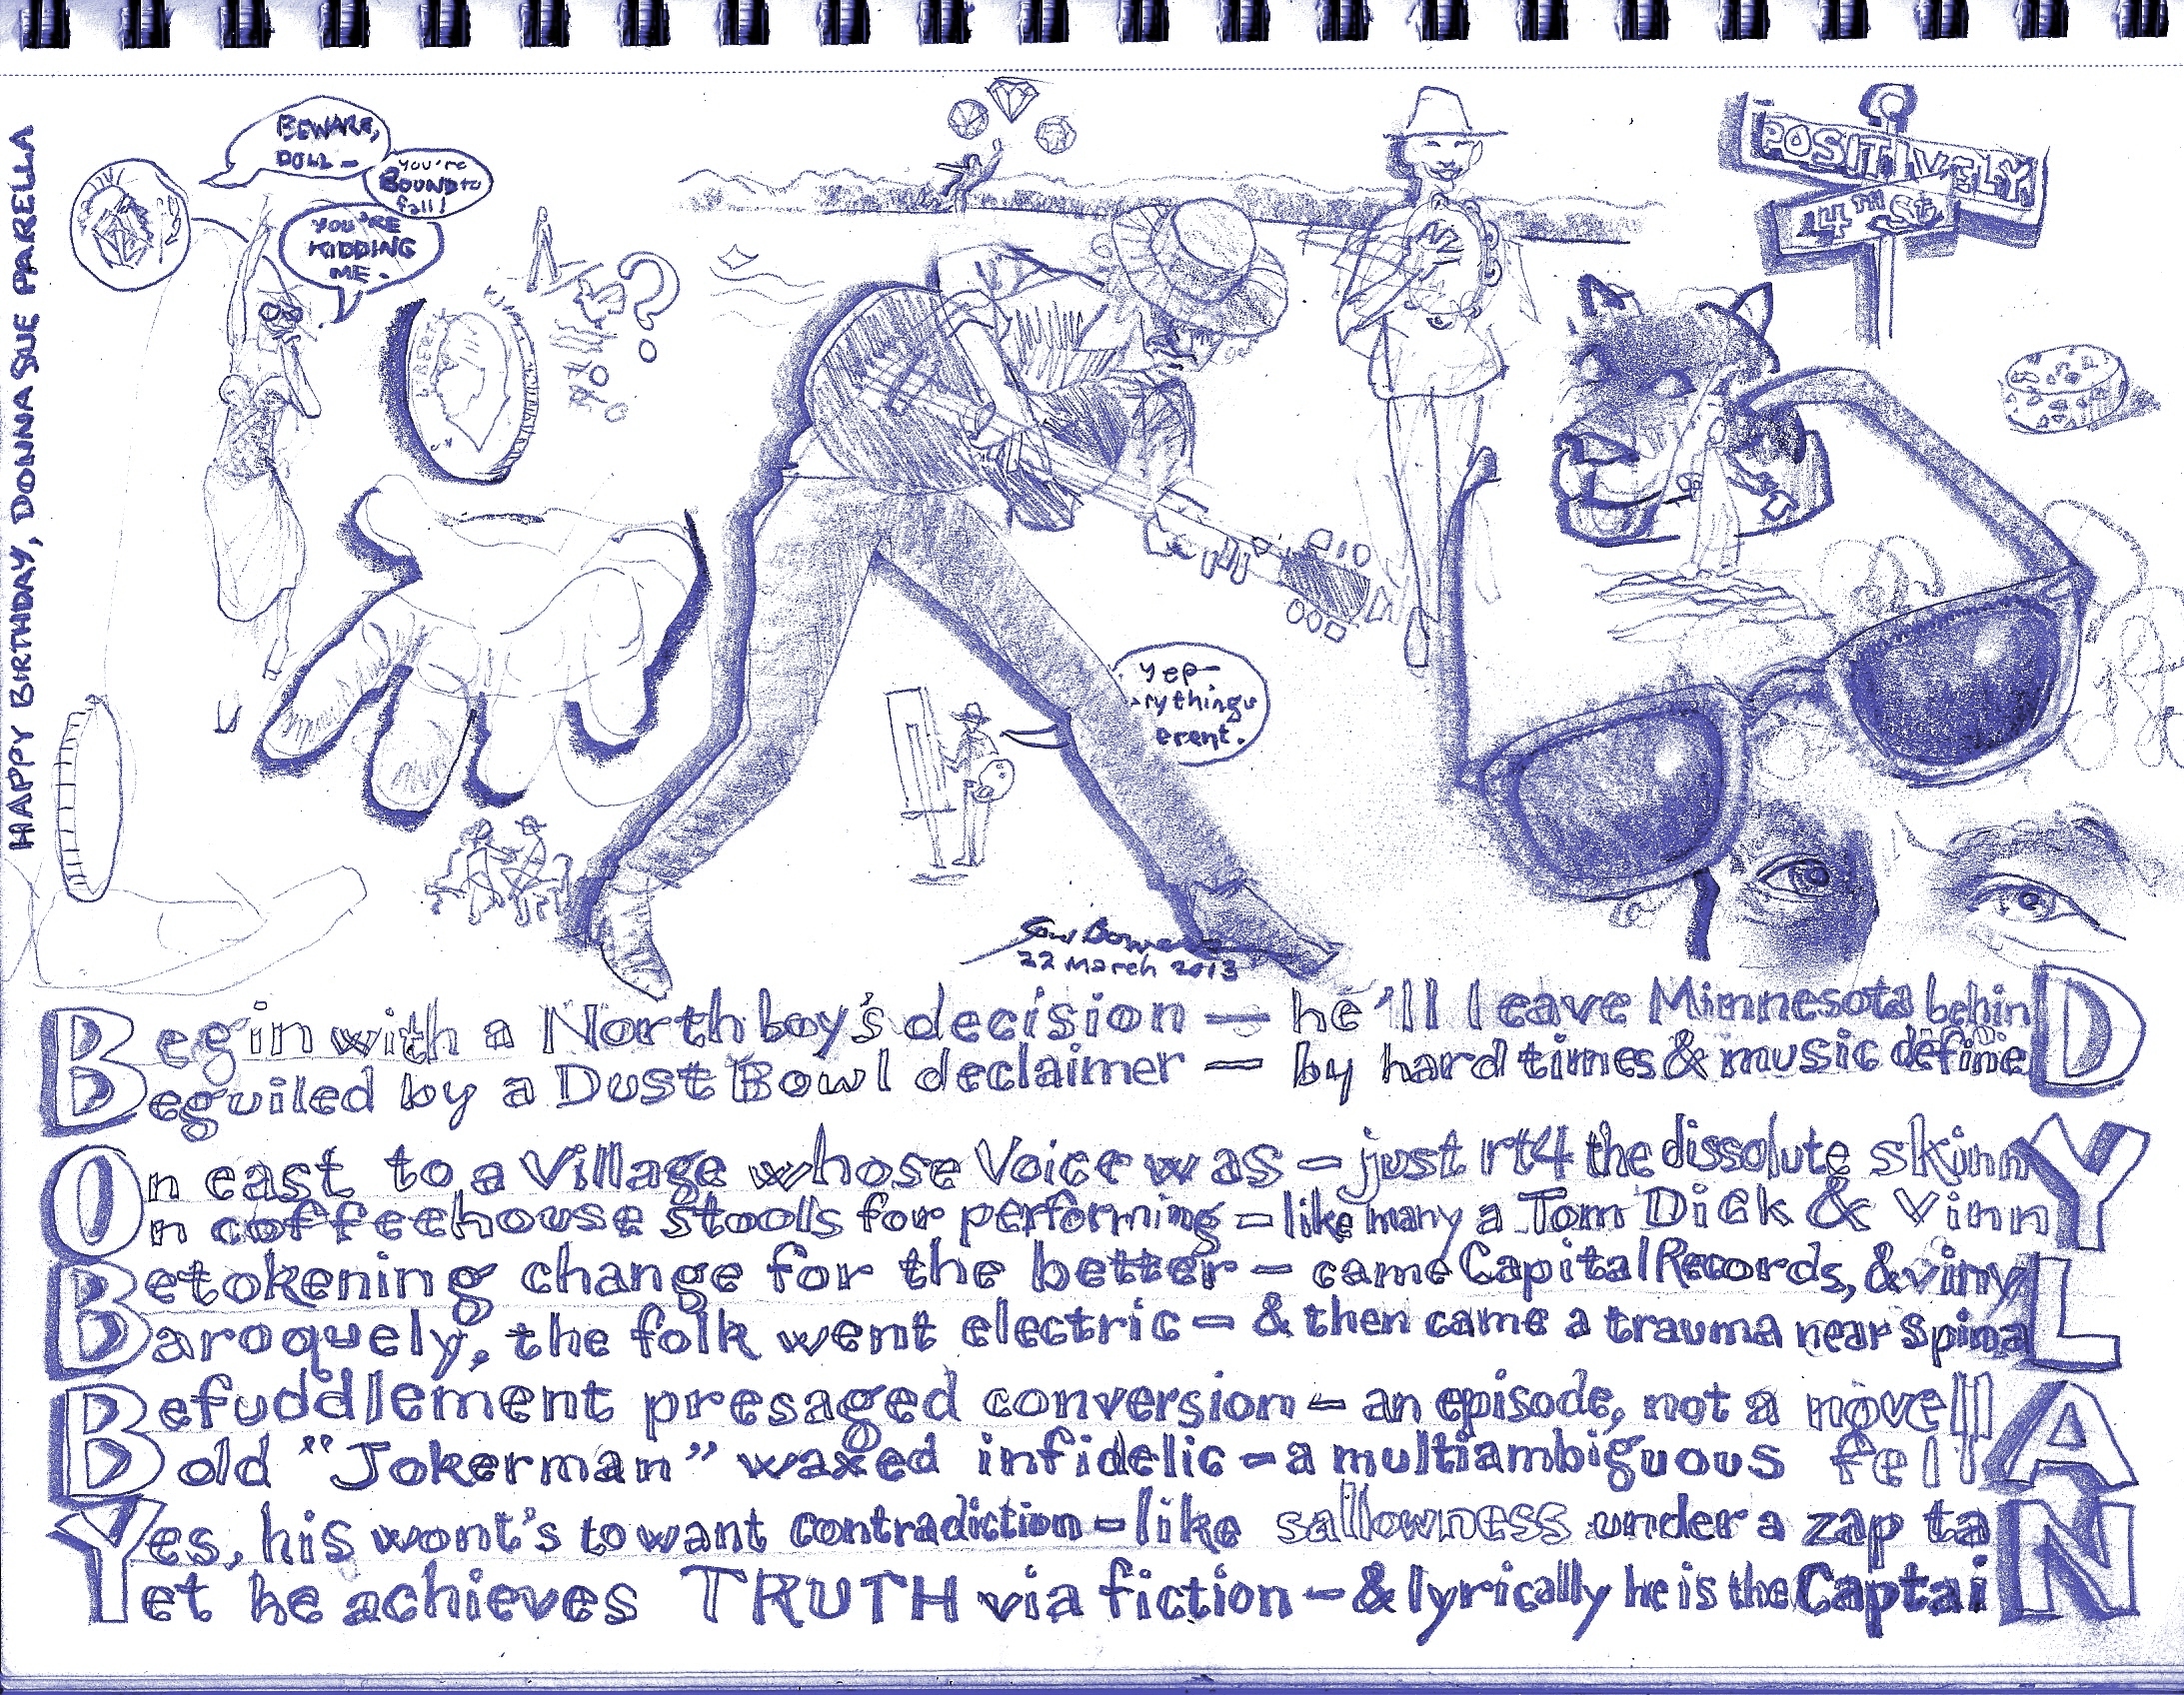 HAPPY BIRTHDAY, DONNA SUE PARELLA
BEWARE,
DOLL —
You're
BOUND to
fall!
YOU'RE
KIDDING
ME.
LIBERTY
POSITIVELY
4TH St.
Yep—
rything's
erent.
22 March 2013
Begin with a North boy's decision — he'll leave Minnesota behinD
Beguiled by a Dust Bowl declaimer — by hard times & music defineD
On east to a Village whose Voice was — just rt4 the dissolute skinnY
On coffeehouse stools for performing — like many a Tom Dick & VinnY
Betokening change for the better — came Capital Records, & vinyL
Baroquely, the folk went electric — & then came a trauma near SpinaL
Befuddlement presaged conversion — an episode, not a novellA
Bold "Jokerman" waxed infidelic — a multiambiguous fellA
Yes, his wont's to want contradiction — like sallowness under a zap taN
Yet he achieves TRUTH via fiction — & lyrically he is the CaptaiN